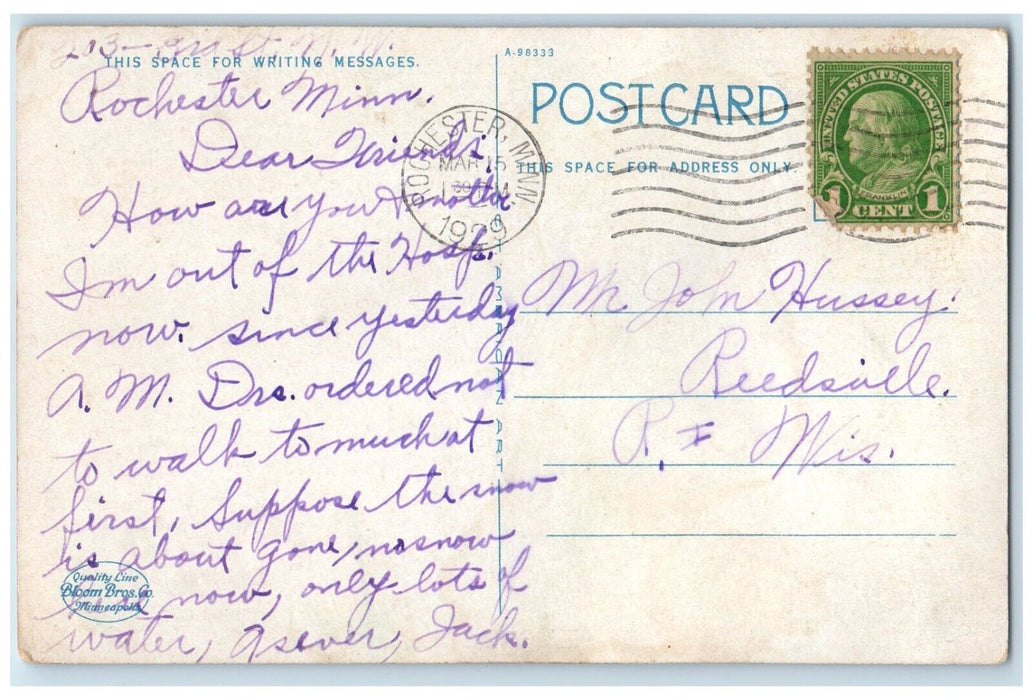 203 - St. N. W.
THIS SPACE FOR WRITING MESSAGES.
Rochester Minn.
Dear Friends.
How are you &
I'm out of the Hosp.
now. since yesterday
A. M. Drs. ordered not
to walk to much at
first, Suppose the snow
is about gone, no snow
here now, only lots of
water, as ever, Jack.
Quality Line
Bloom Bros. Co.
Minneapolis
A-98333
POST CARD
THIS SPACE FOR ADDRESS ONLY.
ROCHESTER, MINN
MAR 15
1929
UNITED STATES POSTAGE
FRANKLIN
1 CENT 1
AMERICAN ART
Mr John Hussey.
Reedsville.
R. I Wis.